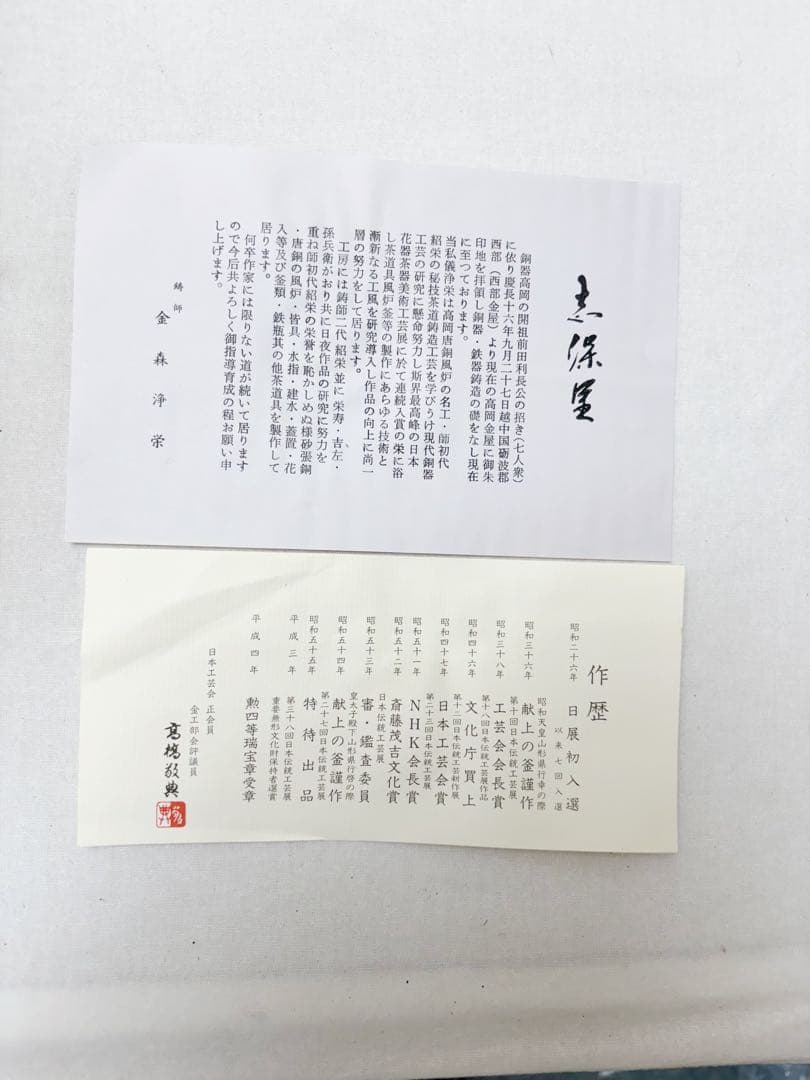 志保里
銅器高岡の開祖前田利長公の招き(七人衆)
に依り慶長十六年九月二十七日越中国砺波郡
西部(西部金屋)より現在の高岡金屋に御朱
印地を拝領し銅器・鉄器鋳造の礎をなし現在
に至つております。
当私儀浄栄は高岡唐銅風炉の名工・師初代
紹栄の秘技茶道鋳造工芸を学びうけ現代銅器
工芸の研究に懸命努力し斯界最高峰の日本
花器茶器美術工芸展に於て連続入賞の栄に浴
し茶道具風炉釜等の製作にあらゆる技術と
漸新なる工風を研究導入し作品の向上に尚一
層の努力をして居ります。
工房には鋳師二代 紹栄 並に 栄寿・吉左・
孫兵衛がおり共に日夜作品の研究に努力を
重ね師初代紹栄の栄誉を恥かしめぬ様砂張銅
・唐銅の風炉・皆具・水指・建水・蓋置・花
入等及び釜類・鉄瓶其の他茶道具を製作して
居ります。
何卒作家には限りない道が続いて居ります
ので今后共よろしく御指導育成の程お願い申
し上げます。
鋳師 金森浄栄
作歴
昭和二十六年 日展初入選
以来七回入選
昭和天皇山形県行幸の際
昭和三十六年 献上の釜謹作
第十回日本伝統工芸展
昭和三十八年 工芸会会長賞
第十八回日本伝統工芸展作品
昭和四十六年 文化庁買上
第十二回日本伝統工芸新作展
昭和四十七年 日本工芸会賞
第二十三回日本伝統工芸展
昭和五十一年 NHK会長賞
昭和五十二年 斎藤茂吉文化賞
日本伝統工芸展
昭和五十三年 審・鑑査委員
皇太子殿下山形県行啓の際
昭和五十四年 献上の釜謹作
第二十七回日本伝統工芸展
昭和五十五年 特待出品
第三十八回日本伝統工芸展
平成三年 重要無形文化財保持者選賞
平成四年 勲四等瑞宝章受章
日本工芸会 正会員
金工部会評議員
高橋敬典